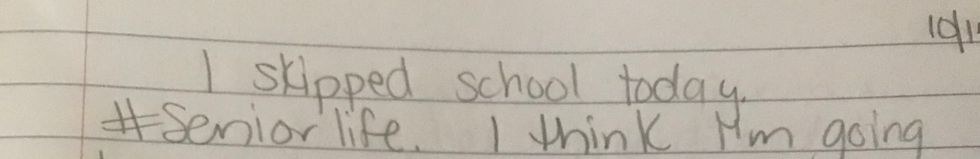 I skipped school today.
#Senior life. I think I'm going